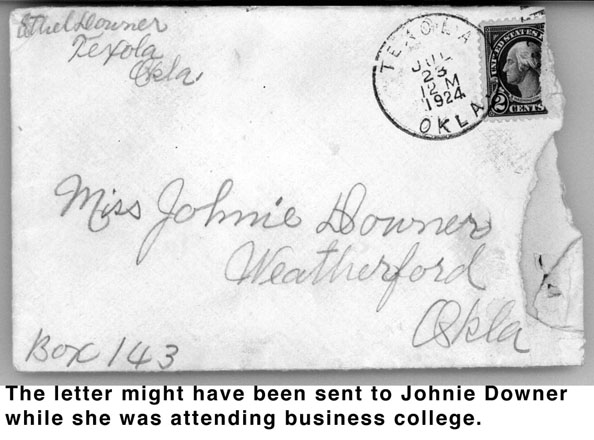 Ethel Downer
Texola
Okla.
TEXOLA
JUL
23
12 M
1924
OKLA.
UNITED STATES
2 CENTS
Miss Johnie Downer
Weatherford
Okla
Box 143
The letter might have been sent to Johnie Downer
while she was attending business college.